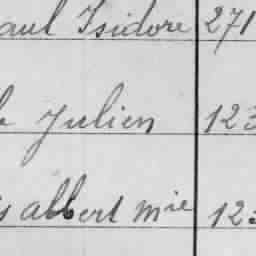 aul Isidore 271
Julien 123
s albert mie 12